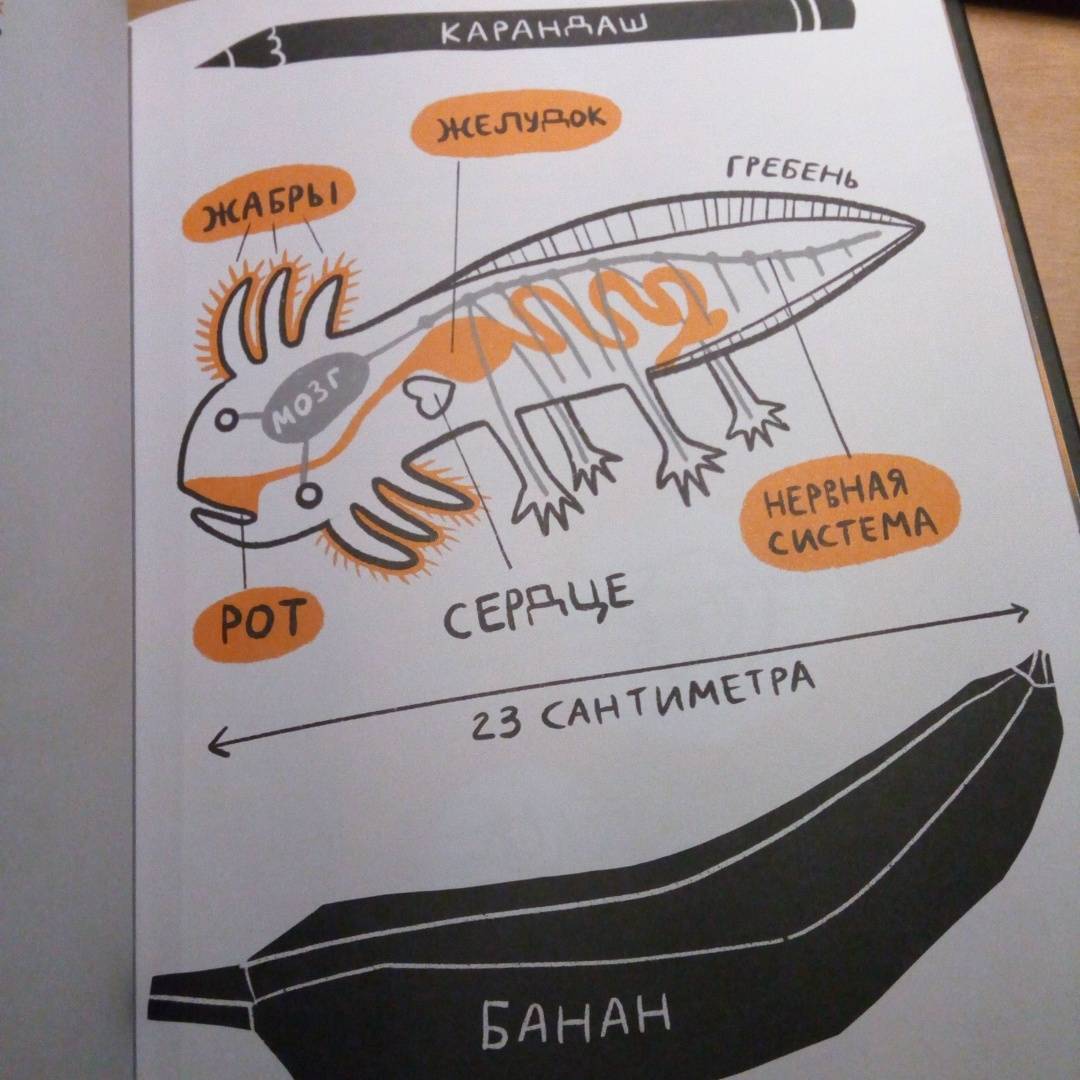 КАРАНДАШ
ЖЕЛУДОК
ГРЕБЕНЬ
ЖАБРЫ
МОЗГ
НЕРВНАЯ
СИСТЕМА
РОТ
СЕРДЦЕ
23 САНТИМЕТРА
БАНАН